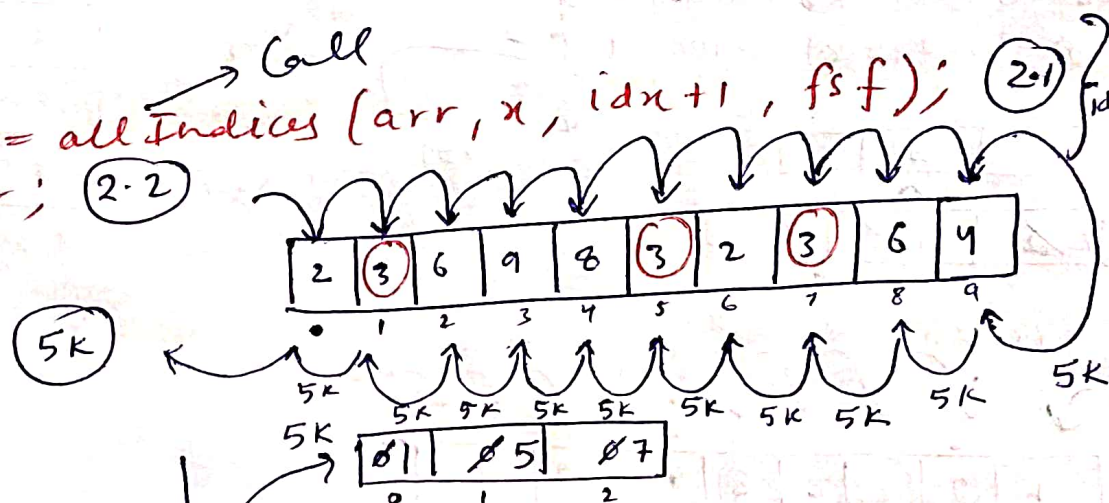 Call
= allIndices (arr, x, idx+1, fsf); 2.1
; 2.2
id
2 3 6 9 8 3 2 3 6 4
1 2 3 4 5 6 7 8 9
5K
5K 5K 5K 5K 5K 5K 5K 5K 5K 5K
5K
01 05 07
0 1 2